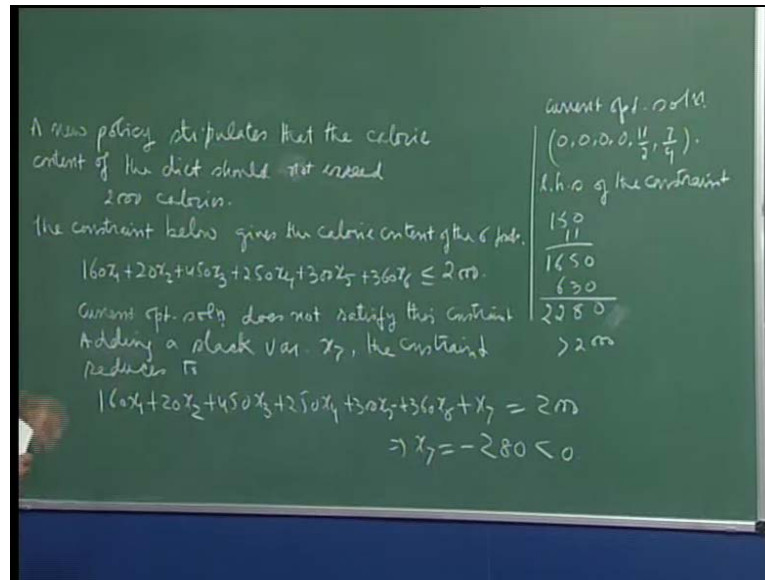 A new policy stipulates that the calorie
content of the diet should not exceed
2000 calories.
The constraint below gives the calorie content of the 6 foods.
160x₁+20x₂+450x₃+250x₄+300x₅+360x₆ ≤ 2000.
current opt. soln does not satisfy this constraint
Adding a slack var. x₇, the constraint
reduces to
160x₁+20x₂+450x₃+250x₄+300x₅+360x₆+x₇ = 2000
⇒ x₇ = -280 < 0
current opt. soln.
(0,0,0,0,11/2,7/4).
l.h.s of the constraint
150
11
1650
630
2280
>2000